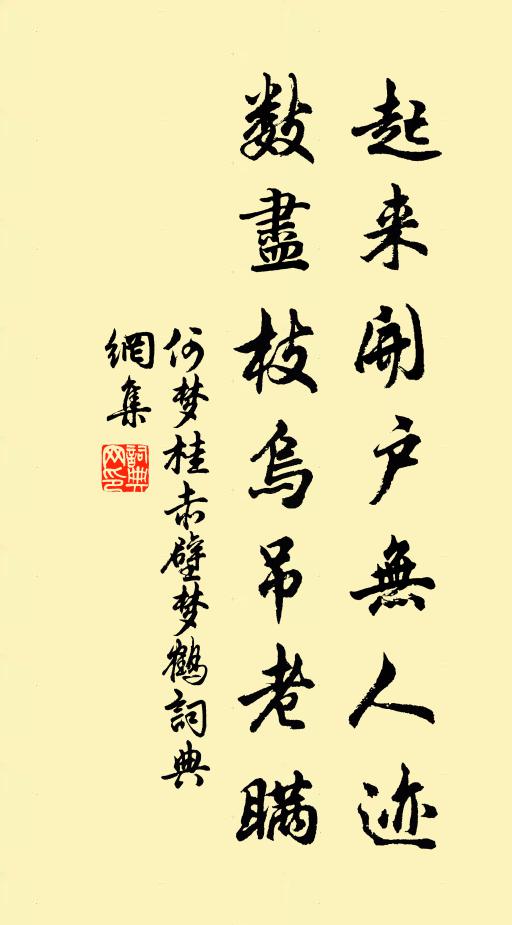 起来開户無人迹
数盡枝烏吊老瞞
何梦桂赤壁梦鶴詞典
網集
詞典
网印